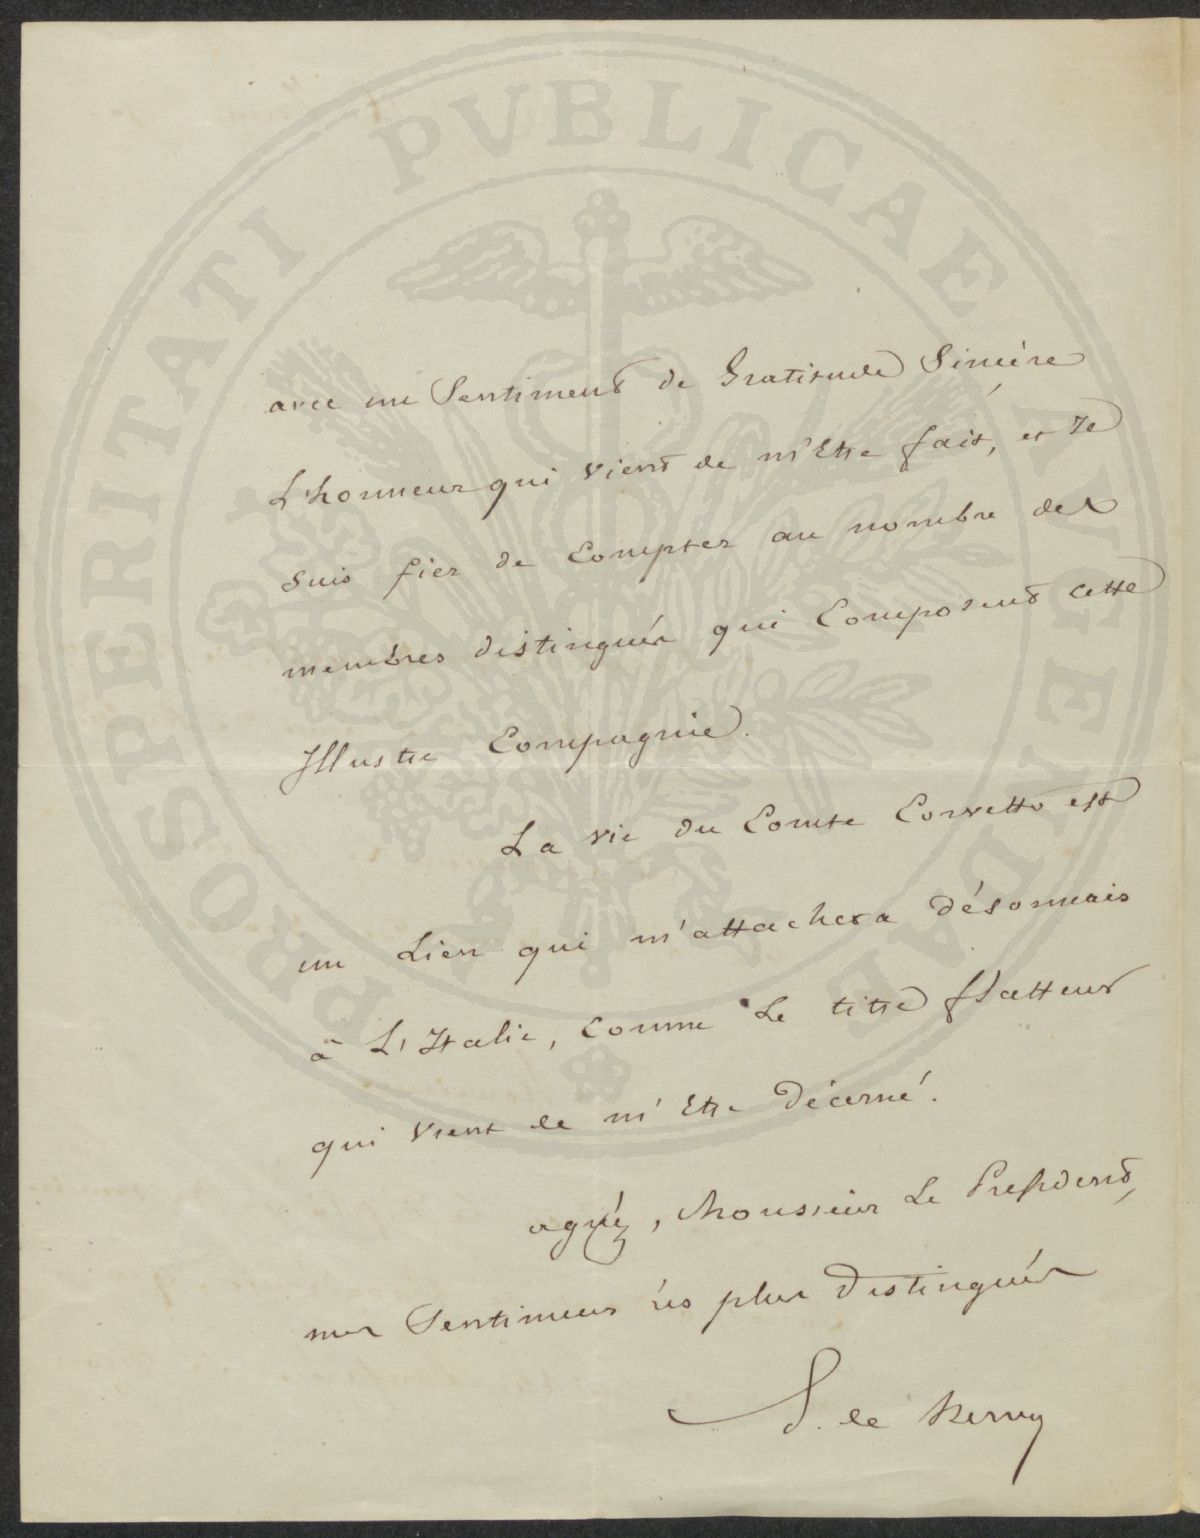 PROSPERITATI PVBLICAE AVGENDAE
avec un Sentiment de Gratitude Sincère
L'honneur qui vient de m'Etre fait, et Je
suis fier de Compter au nombre des
membres distingués qui Composent cette
Illustre Compagnie.
La vie du Comte Corvetto est
un Lien qui m'attachera désormais
à L'Italie, Comme Le titre flatteur
qui vient de m'Etre Décerné.
agréez, Monsieur Le President,
mes Sentimens les plus Distingués
de Nervo